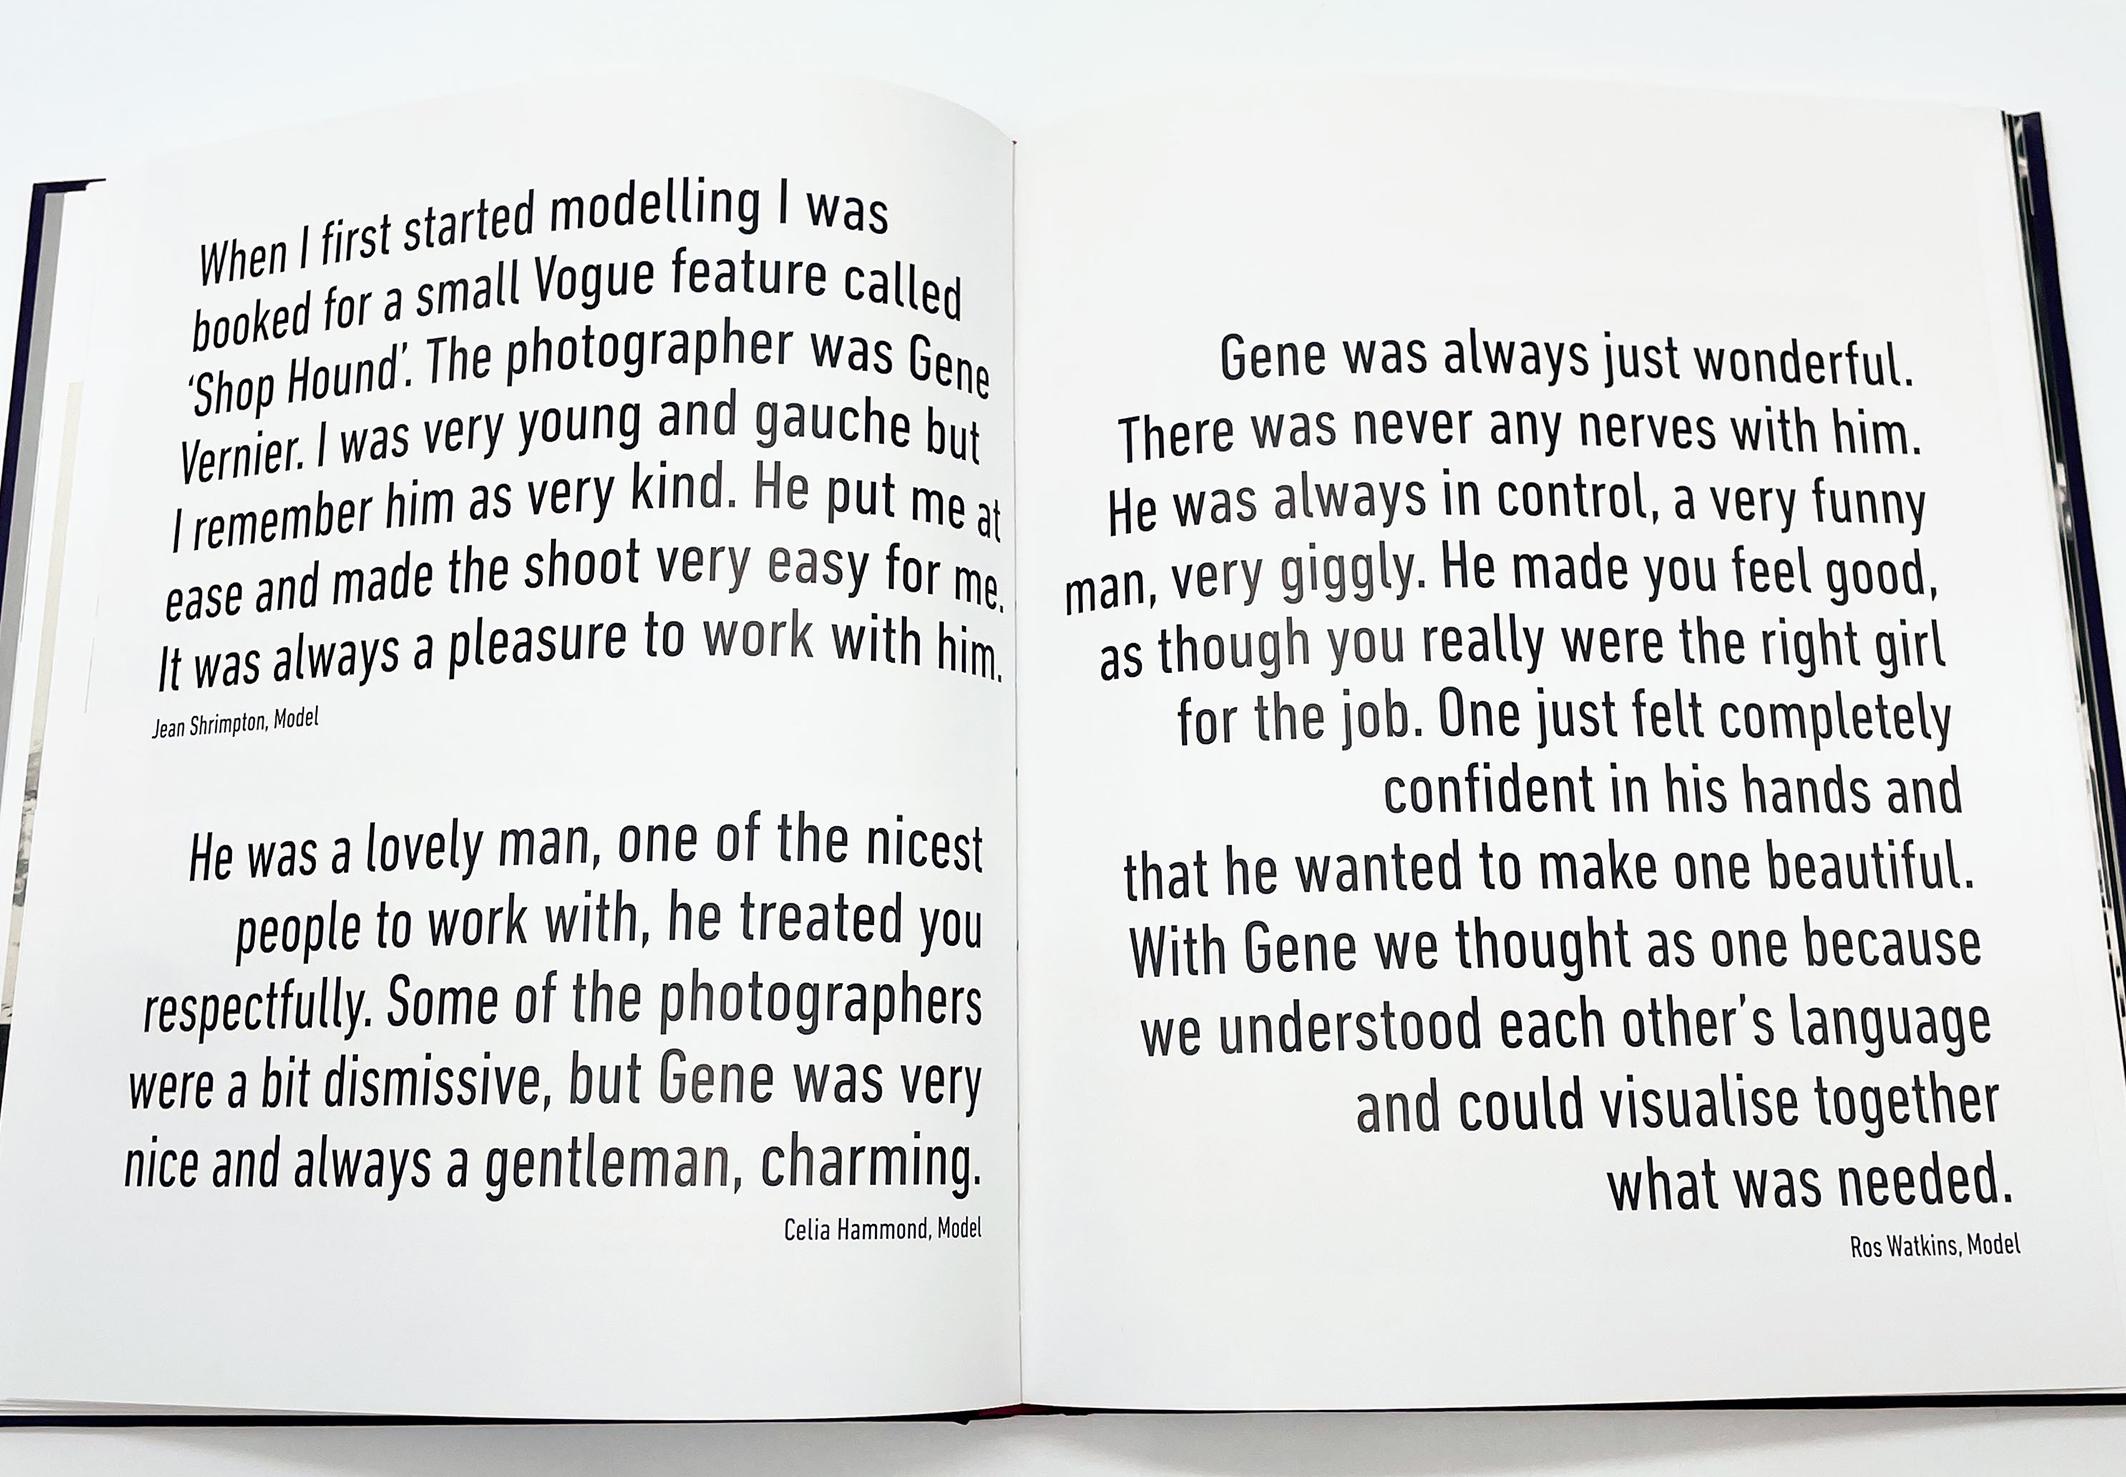 When I first started modelling I was
booked for a small Vogue feature called
‘Shop Hound’. The photographer was Gene
Vernier. I was very young and gauche but
I remember him as very kind. He put me at
ease and made the shoot very easy for me.
It was always a pleasure to work with him.
Jean Shrimpton, Model
He was a lovely man, one of the nicest
people to work with, he treated you
respectfully. Some of the photographers
were a bit dismissive, but Gene was very
nice and always a gentleman, charming.
Celia Hammond, Model
Gene was always just wonderful.
There was never any nerves with him.
He was always in control, a very funny
man, very giggly. He made you feel good,
as though you really were the right girl
for the job. One just felt completely
confident in his hands and
that he wanted to make one beautiful.
With Gene we thought as one because
we understood each other’s language
and could visualise together
what was needed.
Ros Watkins, Model